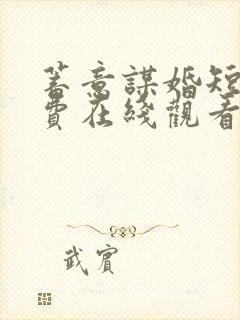 蓄意謀婚短
費在綫觀看
武賓